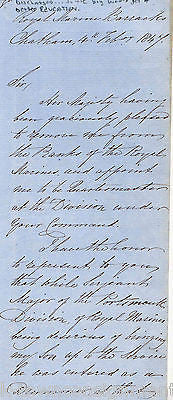 better Education.
Royal Marine Barracks
Chatham, 4th Feby 1847.
Sir,
Her Majesty having
been graciously pleased
to remove me from
the Ranks of the Royal
Marines and appoint
me to be Quartermaster
at the Division under
Your Command.
I have the honor
to represent to you
that while Serjeant
Major of the Portsmouth
Division, of Royal Marines
being desirous of bringing
my son up to the Service
he was entered as a
Drummer at that